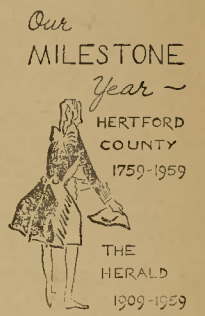 Our
MILESTONE
Year ~
HERTFORD
COUNTY
1759-1959
THE
HERALD
1909-1959